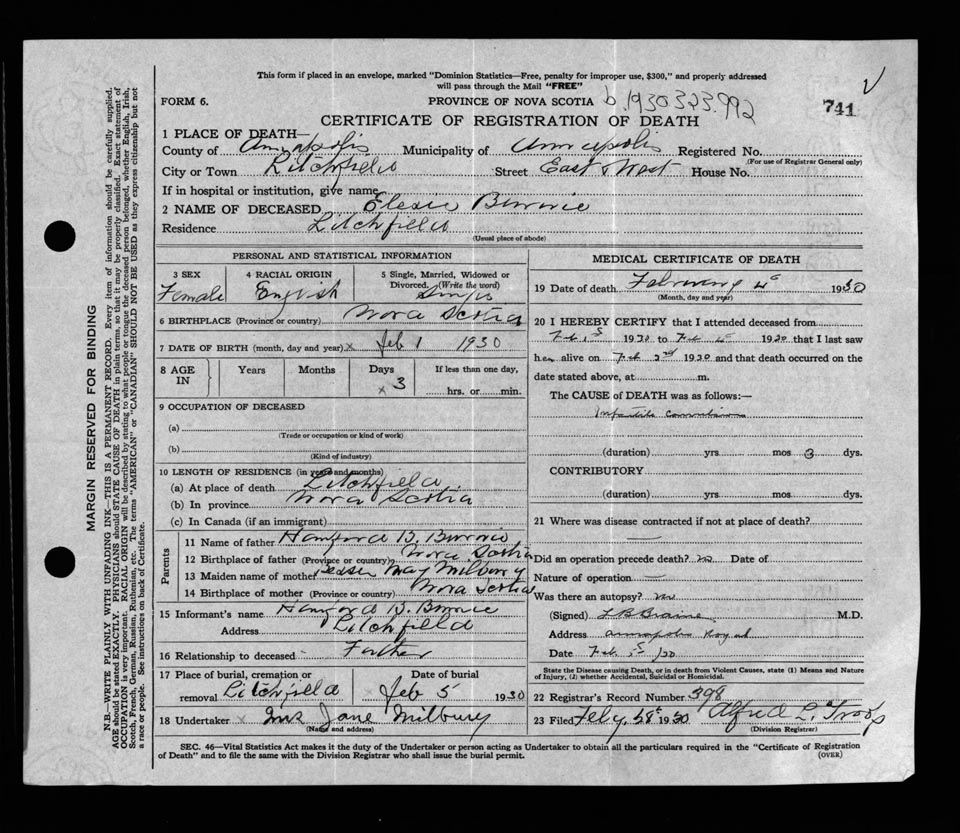 This form if placed in an envelope, marked "Dominion Statistics—Free, penalty for improper use, $300," and properly addressed
will pass through the Mail "FREE"
FORM 6. PROVINCE OF NOVA SCOTIA b.1930 323.992 741
CERTIFICATE OF REGISTRATION OF DEATH
1 PLACE OF DEATH—
County of Annapolis Municipality of Annapolis Registered No.
(For use of Registrar General only)
City or Town Litchfield Street East West House No.
If in hospital or institution, give name
2 NAME OF DECEASED
Residence Litchfield
(Usual place of abode)
PERSONAL AND STATISTICAL INFORMATION
3 SEX
Female
4 RACIAL ORIGIN
English
5 Single, Married, Widowed or
Divorced. (Write the word)
Single
6 BIRTHPLACE (Province or country) Nova Scotia
7 DATE OF BIRTH (month, day and year) x Feb 1 1930
8 AGE IN Years Months Days If less than one day,
x 3 hrs. or min.
9 OCCUPATION OF DECEASED
(a)
(Trade or occupation or kind of work)
(b)
(Kind of industry)
10 LENGTH OF RESIDENCE (in years and months)
(a) At place of death Litchfield
(b) In province Nova Scotia
(c) In Canada (if an immigrant)
Parents
11 Name of father B.
12 Birthplace of father (Province or country) Nova Scotia
13 Maiden name of mother May Milbury
14 Birthplace of mother (Province or country) Nova Scotia
15 Informant's name B.
Address Litchfield
16 Relationship to deceased Father
17 Place of burial, cremation or
removal Litchfield
Date of burial
Feb 5 1930
18 Undertaker x Mrs Jane Milbury
(Name and address)
MEDICAL CERTIFICATE OF DEATH
19 Date of death February 4 1930
(Month, day and year)
20 I HEREBY CERTIFY that I attended deceased from
Feb 1st 1930 to Feb 4 1930 that I last saw
her alive on Feb 2nd 1930 and that death occurred on the
date stated above, at m.
The CAUSE of DEATH was as follows:—
Infantile Convulsions
(duration) yrs. mos 3 dys.
CONTRIBUTORY
(duration) yrs. mos. dys.
21 Where was disease contracted if not at place of death?
Did an operation precede death? no Date of
Nature of operation
Was there an autopsy? no
(Signed) L B Braine M.D.
Address Annapolis Royal
Date Feb 5 /30
State the Disease causing Death, or in death from Violent Causes, state (1) Means and Nature
of Injury, (2) whether Accidental, Suicidal or Homicidal.
22 Registrar's Record Number 398
23 Filed 1930 Alfred L. Troop
(Division Registrar)
SEC. 46—Vital Statistics Act makes it the duty of the Undertaker or person acting as Undertaker to obtain all the particulars required in the "Certificate of Registration
of Death" and to file the same with the Division Registrar who shall issue the burial permit. (OVER)
MARGIN RESERVED FOR BINDING
N.B.—WRITE PLAINLY WITH UNFADING INK—THIS IS A PERMANENT RECORD. Every item of information should be carefully supplied.
AGE should be stated EXACTLY. PHYSICIANS should STATE CAUSE OF DEATH in plain terms, so that it may be properly classified. Exact statement of
OCCUPATION is very important. RACIAL ORIGIN will be described by stating to what people or tongue the deceased person belonged, whether English, Irish,
Scotch, French, German, Russian, Ruthenian, etc. The terms "AMERICAN" or "CANADIAN" SHOULD NOT BE USED as they express citizenship but not
a race or people. See instructions on back of Certificate.